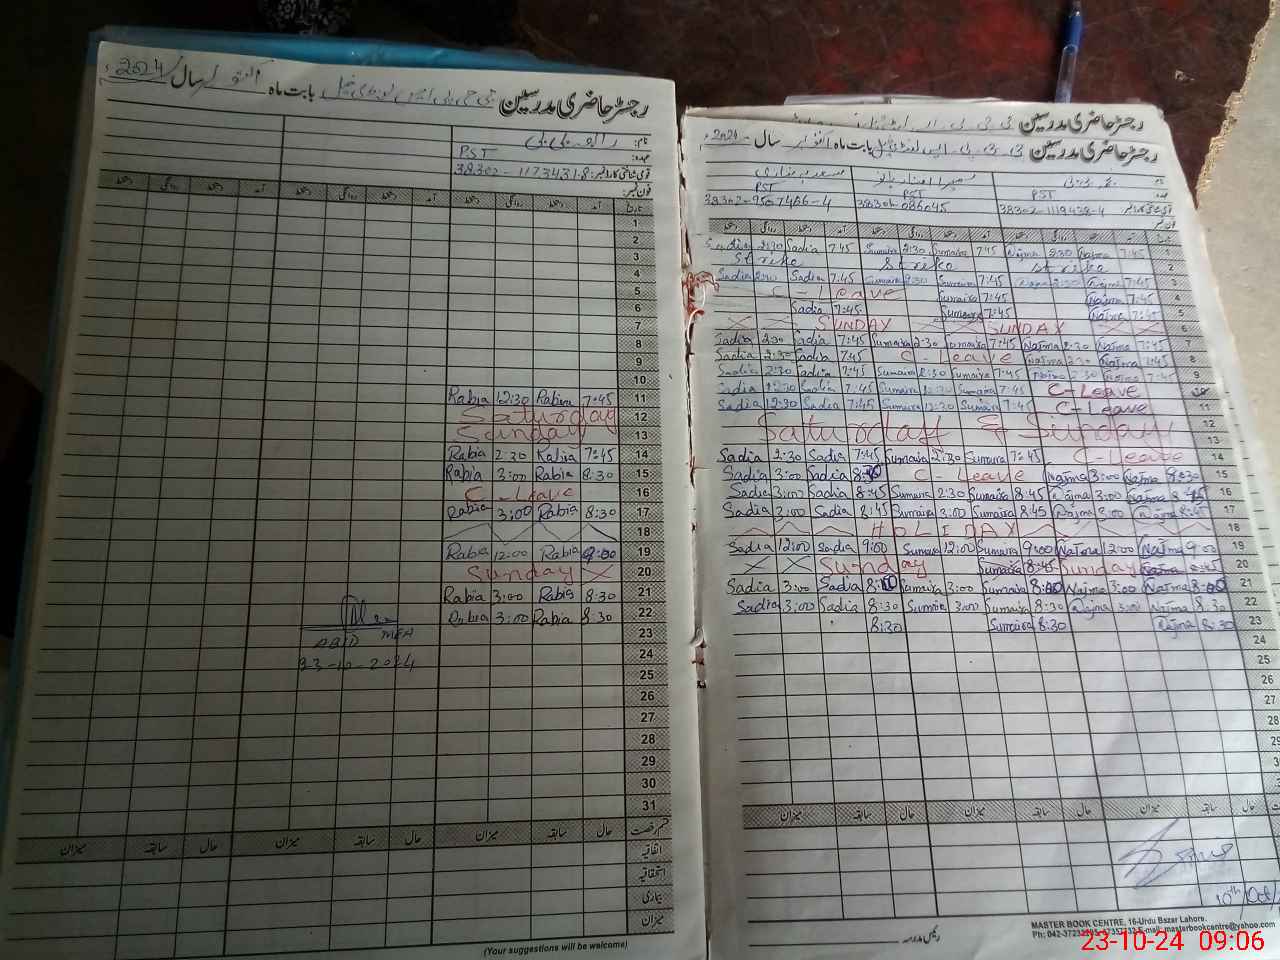 رجسٹر حاضری مدرسین بابت ماہ اکتوبر سال 2024ء
نام:
عہدہ: PST
قومی شناختی کارڈ نمبر: 38302-1173431-8
فون نمبر:
تاریخ آمد دستخط روانگی دستخط آمد دستخط روانگی دستخط
1
2
3
4
5
6
7
8
9
10
Rabia 12:30 Rabia 7:45 11
Saturday 12
Sunday 13
Rabia 2:30 Rabia 7:45 14
Rabia 3:00 Rabia 8:30 15
C-Leave 16
Rabia 3:00 Rabia 8:30 17
18
Rabia 12:00 Rabia 9:00 19
Sunday 20
Rabia 3:00 Rabia 8:30 21
Rabia 3:00 Rabia 8:30 22
ABID MEA 23
23-10-2024 24
25
26
27
28
29
30
31
قسم رخصت حال سابقہ میزان حال سابقہ میزان حال سابقہ میزان
اتفاقیہ
استحقاقیہ
بیماری
میزان
(Your suggestions will be welcome)
رجسٹر حاضری مدرسین
رجسٹر حاضری مدرسین بابت ماہ اکتوبر سال 2024ء
PST PST PST
38302-9507466-4 38302-1119438-4
Sadia 2:30 Sadia 7:45 Sumaira 2:30 Sumaira 7:45 Najma 2:30 Najma 7:45 1
Strike Strike Strike 2
Sadia 2:30 Sadia 7:45 Sumaira 2:30 Sumaira 7:45 Najma 2:30 Najma 7:45 3
C-Leave Sumaira 7:45 Najma 7:45 4
Sadia 7:45 Sumaira 7:45 Najma 7:45 5
SUNDAY SUNDAY 6
Sadia 2:30 Sadia 7:45 Sumaira 2:30 Sumaira 7:45 Najma 2:30 Najma 7:45 7
Sadia 2:30 Sadia 7:45 C-Leave Najma 2:30 Najma 7:45 8
Sadia 2:30 Sadia 7:45 Sumaira 2:30 Sumaira 7:45 Najma 2:30 Najma 7:45 9
Sadia 12:30 Sadia 7:45 Sumaira 12:30 Sumaira 7:45 C-Leave
Sadia 12:30 Sadia 7:45 Sumaira 12:30 Sumaira 7:45 C-Leave 11
Saturday & Sunday 12
13
Sadia 2:30 Sadia 7:45 Sumaira 2:30 Sumaira 7:45 C-Leave 14
Sadia 3:00 Sadia C-Leave Najma 3:00 Najma 8:30 15
Sadia 3:00 Sadia 8:45 Sumaira 2:30 Sumaira 8:45 Najma 3:00 Najma 8:45 16
Sadia 3:00 Sadia 8:45 Sumaira 3:00 Sumaira 8:45 Najma 3:00 Najma 8:45 17
HOLIDAY 18
Sadia 12:00 Sadia 9:00 Sumaira 12:00 Sumaira 9:00 Najma 12:00 Najma 9:00 19
Sunday Sumaira 8:45 Sunday Najma 8:45 20
Sadia 3:00 Sadia Sumaira 3:00 Sumaira Najma 3:00 Najma 21
Sadia 3:00 Sadia 8:30 Sumaira 3:00 Sumaira 8:30 Najma 3:00 Najma 8:30 22
8:30 Sumaira 8:30 Najma 8:30 23
24
25
26
27
28
29
میزان سابقہ حال میزان سابقہ حال میزان سابقہ حال
10th/Oct/
رئیس مدرسہ
MASTER BOOK CENTRE, 16-Urdu Bazar Lahore.
E-mail: masterbookcentre@yahoo.com
23-10-24 09:06